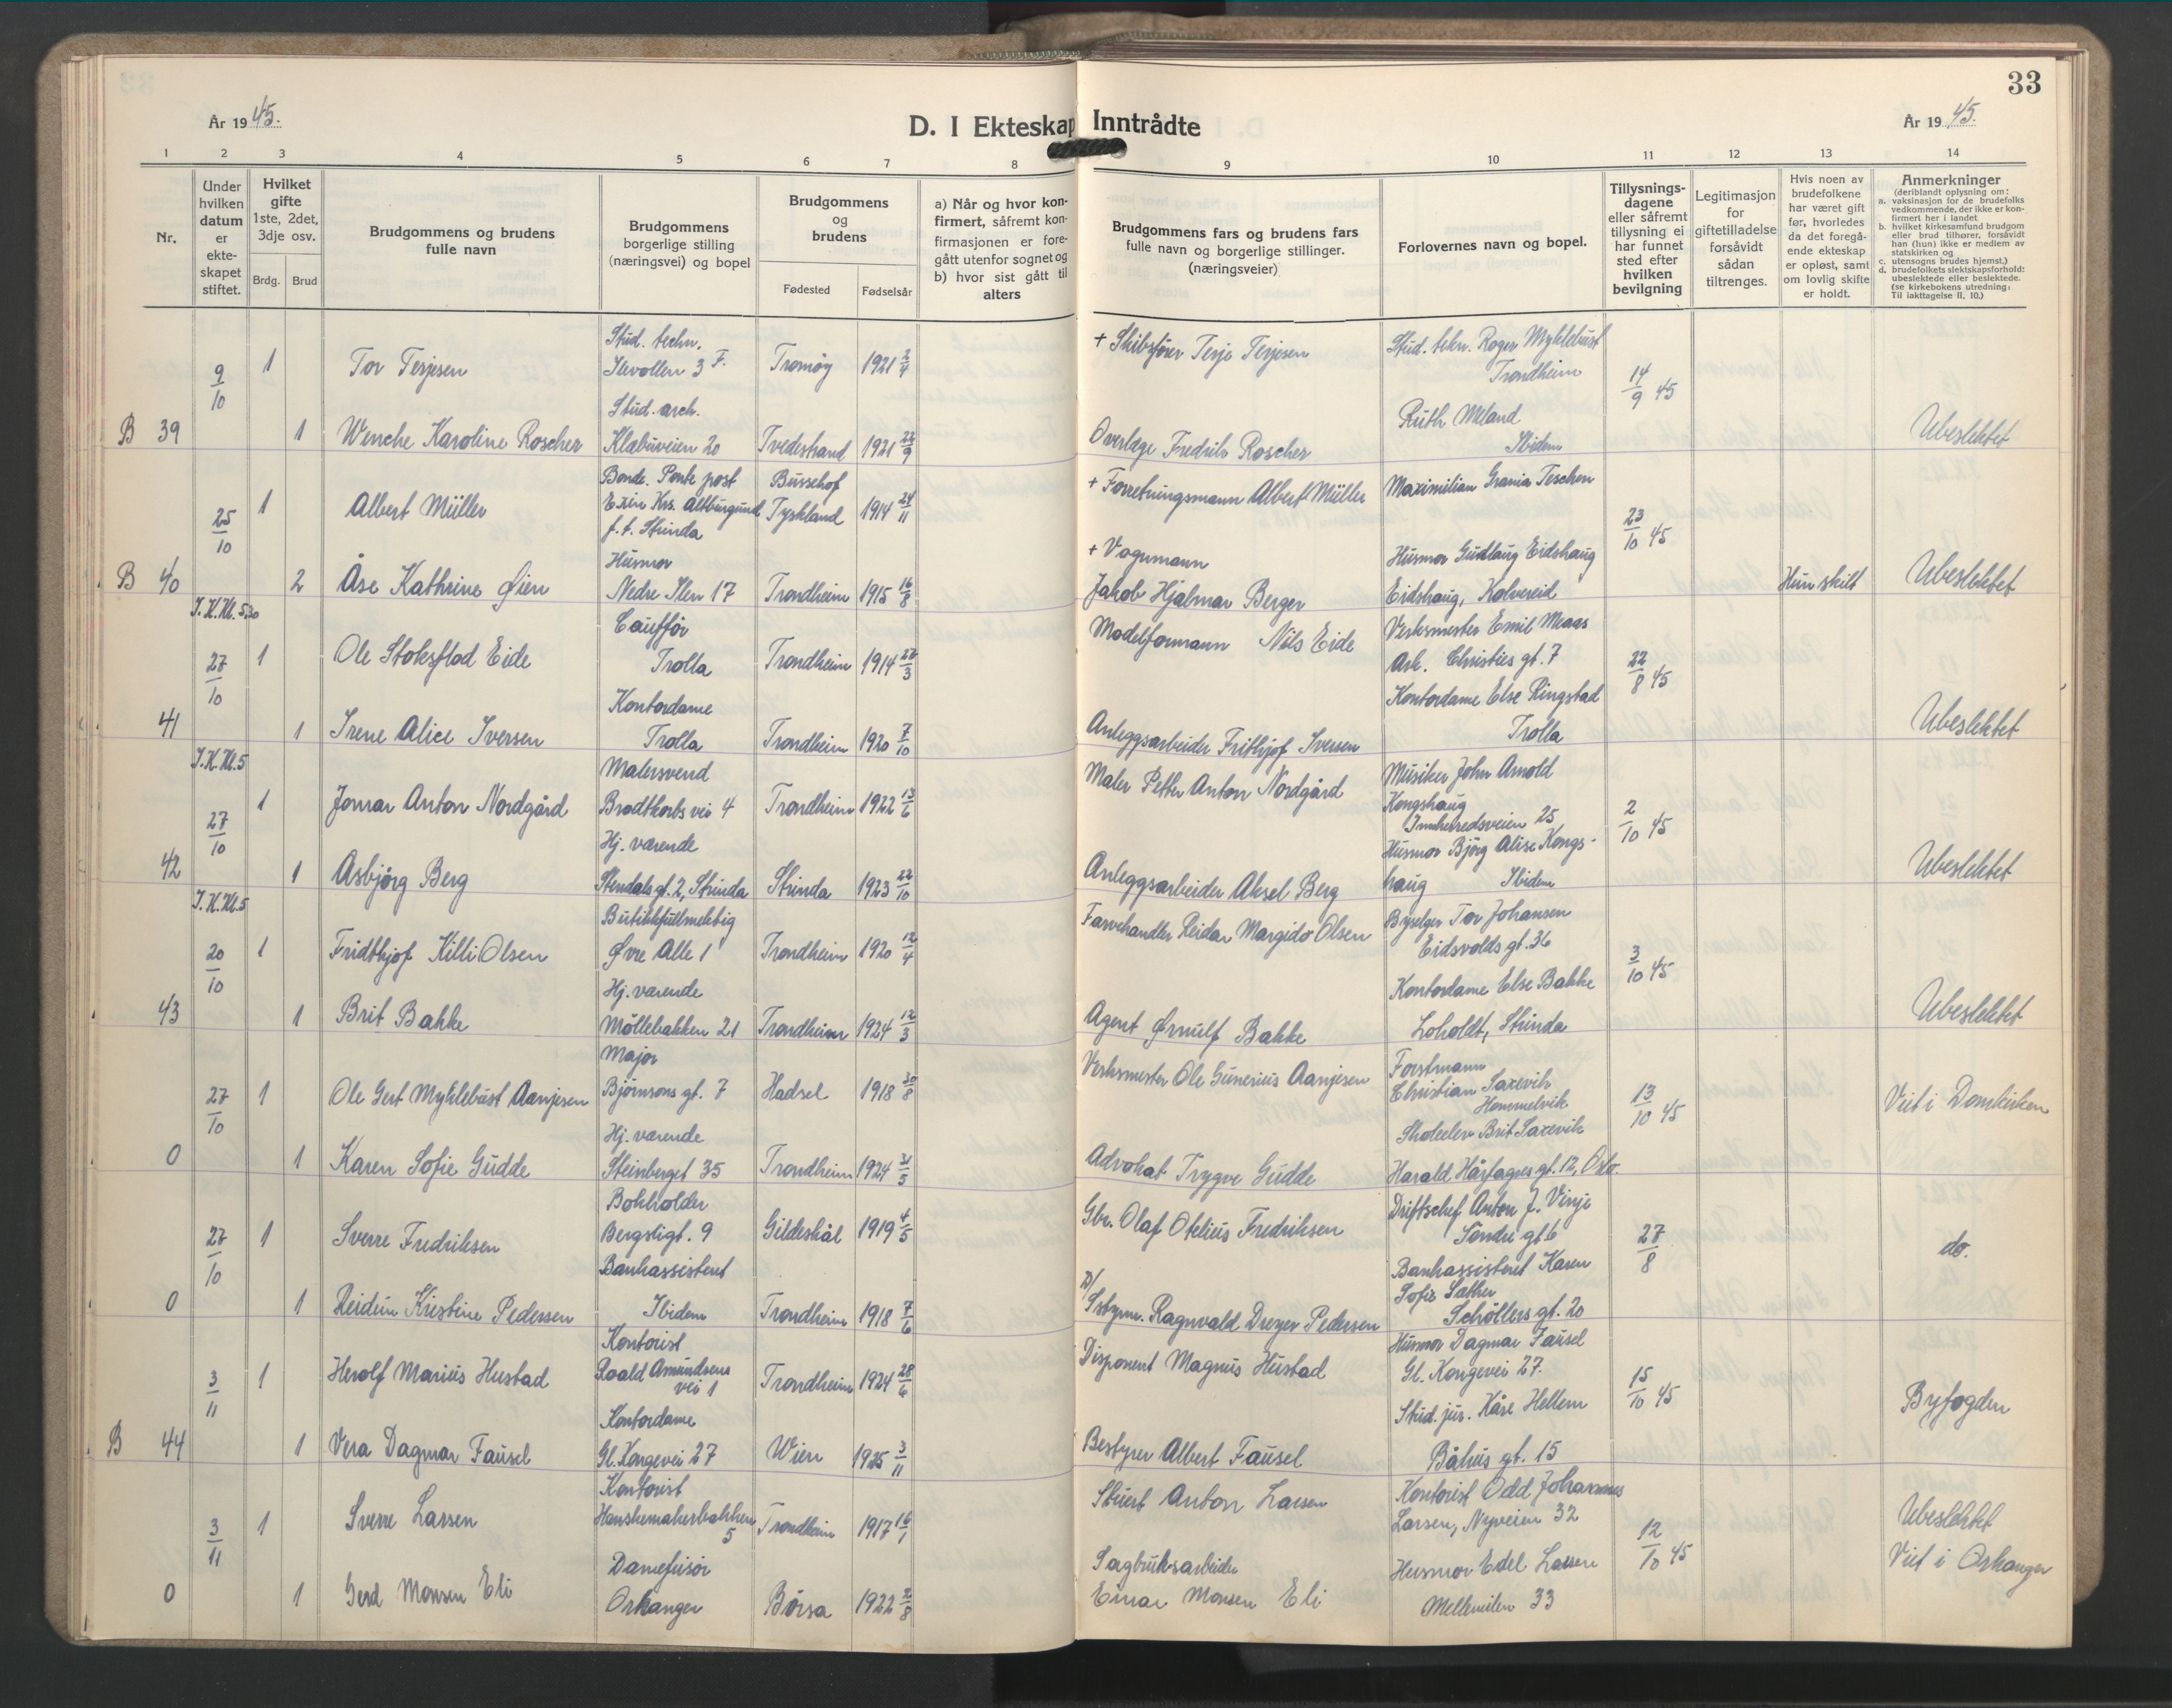 33
År 1945.
D. I Ekteskap Inntrådte
År 1945.
1 2 3 4 5 6 7 8 9 10 11 12 13 14
Nr.
Under hvilken datum er ekte-skapet stiftet.
Hvilket gifte 1ste, 2det, 3dje osv.
Brdg. Brud
Brudgommens og brudens fulle navn
Brudgommens borgerlige stilling (næringsvei) og bopel
Brudgommens og brudens
Fødested Fødselsår
a) Når og hvor kon-firmert, såfremt kon-firmasjonen er fore-gått utenfor sognet og b) hvor sist gått til alters
Brudgommens fars og brudens fars fulle navn og borgerlige stillinger. (næringsveier)
Forlovernes navn og bopel.
Tillysnings-dagene eller såfremt tillysning ei har funnet sted efter hvilken bevilgning
Legitimasjon for giftetilladelse forsåvidt sådan tiltrenges.
Hvis noen av brudefolkene har været gift før, hvorledes da det foregå-ende ekteskap er opløst, samt om lovlig skifte er holdt.
Anmerkninger
(deriblandt oplysning om:
a. vaksinasjon for de brudefolks vedkommende, der ikke er kon-firmert her i landet
b. hvilket kirkesamfund brudgom eller brud tilhører, forsåvidt han (hun) ikke er medlem av statskirken og
c. utensogns brudes hjemst.)
d. brudefolkets slektskapsforhold: ubeslektede eller beslektede.
(se kirkebokens utredning: Til iakttagelse II. 10.)
9/10 1 Tor Terjesen Stud. techn. Ilevollen 3 F. Tromøy 1921 2/4 + Skibsfører Terje Terjesen Stud. tekn. Roger Myklebust Trondheim 14/9 45
B 39 1 Wenche Karoline Roscher Stud. arch. Klæbuveien 20 Tvedestrand 1921 22/9 Overlæge Fredrik Roscher Ruth Meland Ibidem Ubeslektet
25/10 1 Albert Müller Bonde. post Exin Krs. Altburgund f. t. Strinda Bussehof Tyskland 1914 24/11 + Forretningsmann Albert Müller Maximilian Grania Teschen 23/10 45
B 40 2 Åse Kathrine Øien Husmor Nedre Ilen 17 Trondheim 1915 16/8 + Vognmann Jakob Hjalmar Berger Husmor Gudlaug Eidshaug Eidshaug, Kolvereid Hun skilt Ubeslektet
I.K. Kl. 5,30
27/10 1 Ole Stoksflod Eide Cauffør Trolla Trondheim 1914 27/3 Modelformann Nils Eide Verksmester Emil Maas Ark. Christies gt. 7 22/8 45
41 1 Irene Alice Iversen Kontordame Trolla Trondheim 1920 7/10 Anleggsarbeider Frithjof Iversen Kontordame Else Ringstad Trolla Ubeslektet
I.K. Kl. 5
27/10 1 Jomar Anton Nordgård Malersvend Brodtkorbs vei 4 Trondheim 1922 13/6 Maler Petter Anton Nordgård Musiker John Arnold Kongshaug Innherredsveien 25 2/10 45
42 1 Asbjørg Berg Hj. værende Stendals gt. 2, Strinda Strinda 1923 22/10 Anleggsarbeider Aksel Berg Husmor Bjørg Alise Kongs-haug Ibidem Ubeslektet
I.K. Kl. 5
20/10 1 Fridthjof Killi Olsen Butikkfullmektig Øvre Alle 1 Trondheim 1920 12/4 Farvehandler Reidar Margido Olsen Byselger Tor Johansen Eidsvolds gt. 36 3/10 45
43 1 Brit Bakke Hj. værende Møllebakken 21 Trondheim 1924 12/3 Agent Ørnulf Bakke Kontordame Else Bakke Loholdt, Strinda Ubeslektet
27/10 1 Ole Gert Myklebust Aanjesen Major Bjørnsons gt. 7 Hadsel 1918 30/8 Verksmester Ole Gunerius Aanjesen Forstmann Christian Saxevik Hommelvik 13/10 45 Viet i Domkirken
0 1 Karen Sofie Gudde Hj. værende Steinberget 35 Trondheim 1924 31/5 Advokat Trygve Gudde Skoleelev Brit Saxevik Harald Hårfagres gt. 12, Oslo.
27/10 1 Sverre Fredriksen Bokholder Bergsligt. 9 Gildeskål 1919 4/5 Gbr. Olaf Otelius Fredriksen Driftschef Anton J. Vinje Søndre gt 6 27/8 do.
0 1 Reidun Kristine Pedersen Bankassistent Ibidem Trondheim 1918 7/6 D/ Sstyrm. Ragnvald Dreyer Pedersen Bankassistent Karen Sofie Sæther Schøllers gt. 20
3/11 1 Herolf Marius Hustad Kontorist Roald Amundsens vei 1 Trondheim 1924 28/6 Disponent Magnus Hustad Husmor Dagmar Fausel Gl. Kongevei 27. 15/10 45
B 44 1 Vera Dagmar Fausel Kontordame Gl. Kongevei 27 Wien 1925 3/11 Bestyrer Albert Fausel Stud. jur. Kåre Hellem Båhus gt. 15 Byfogden
3/11 1 Sverre Larsen Kontorist Hanskemakerbakken 5 Trondheim 1917 16/1 Stuert Anton Larsen Kontorist Odd Johannes Larsen, Nyveien 32 12/10 45 Ubeslektet
0 1 Gerd Monsen Eli Damefrisør Orkanger Børsa 1922 2/8 Sagbruksarbeider Einar Monsen Eli Husmor Edel Larsen Mellemilen 33 Viet i Orkanger